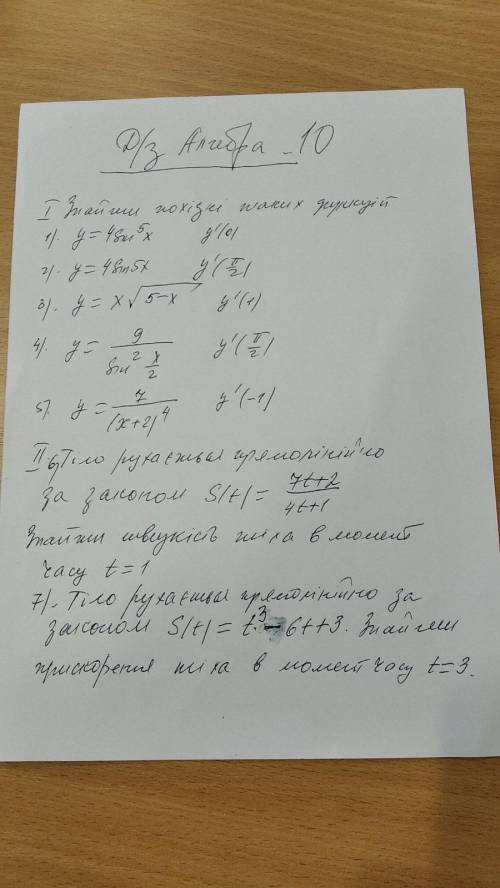 Д/з Алгебра - 10
I Знайти похідні таких функцій
1). y = 4sin⁵x y'(0)
2). y = 4sin5x y'(π/2)
3). y = x√(5-x) y'(1)
4). y = 9/(sin² x/2) y'(π/2)
5). y = 7/(x+2)⁴ y'(-1)
II 6) Тіло рухається прямолінійно
за законом S(t) = (7t+2)/(4t+1)
Знайти швидкість тіла в момент
часу t=1
7). Тіло рухається прямолінійно за
законом S(t) = t³ - 6t+3. Знайти
прискорення тіла в момент часу t=3.